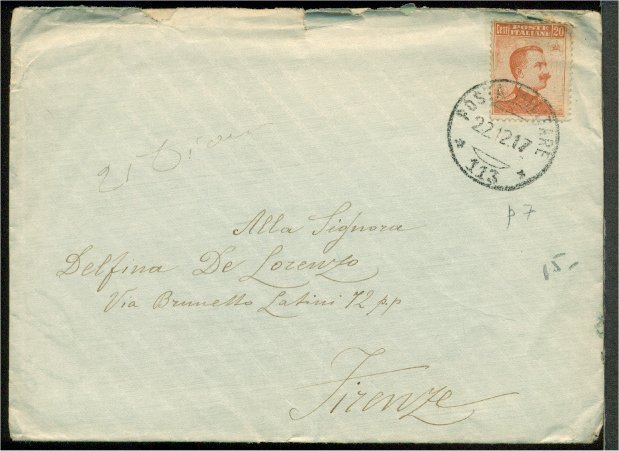 POSTE
ITALIANE
Cent 20
POSTA MILITARE
22.12.17
* 113 *
p 7
15-
Alla Signora
Delfina De Lorenzo
Via Brunetto Latini 72 p.p
Firenze